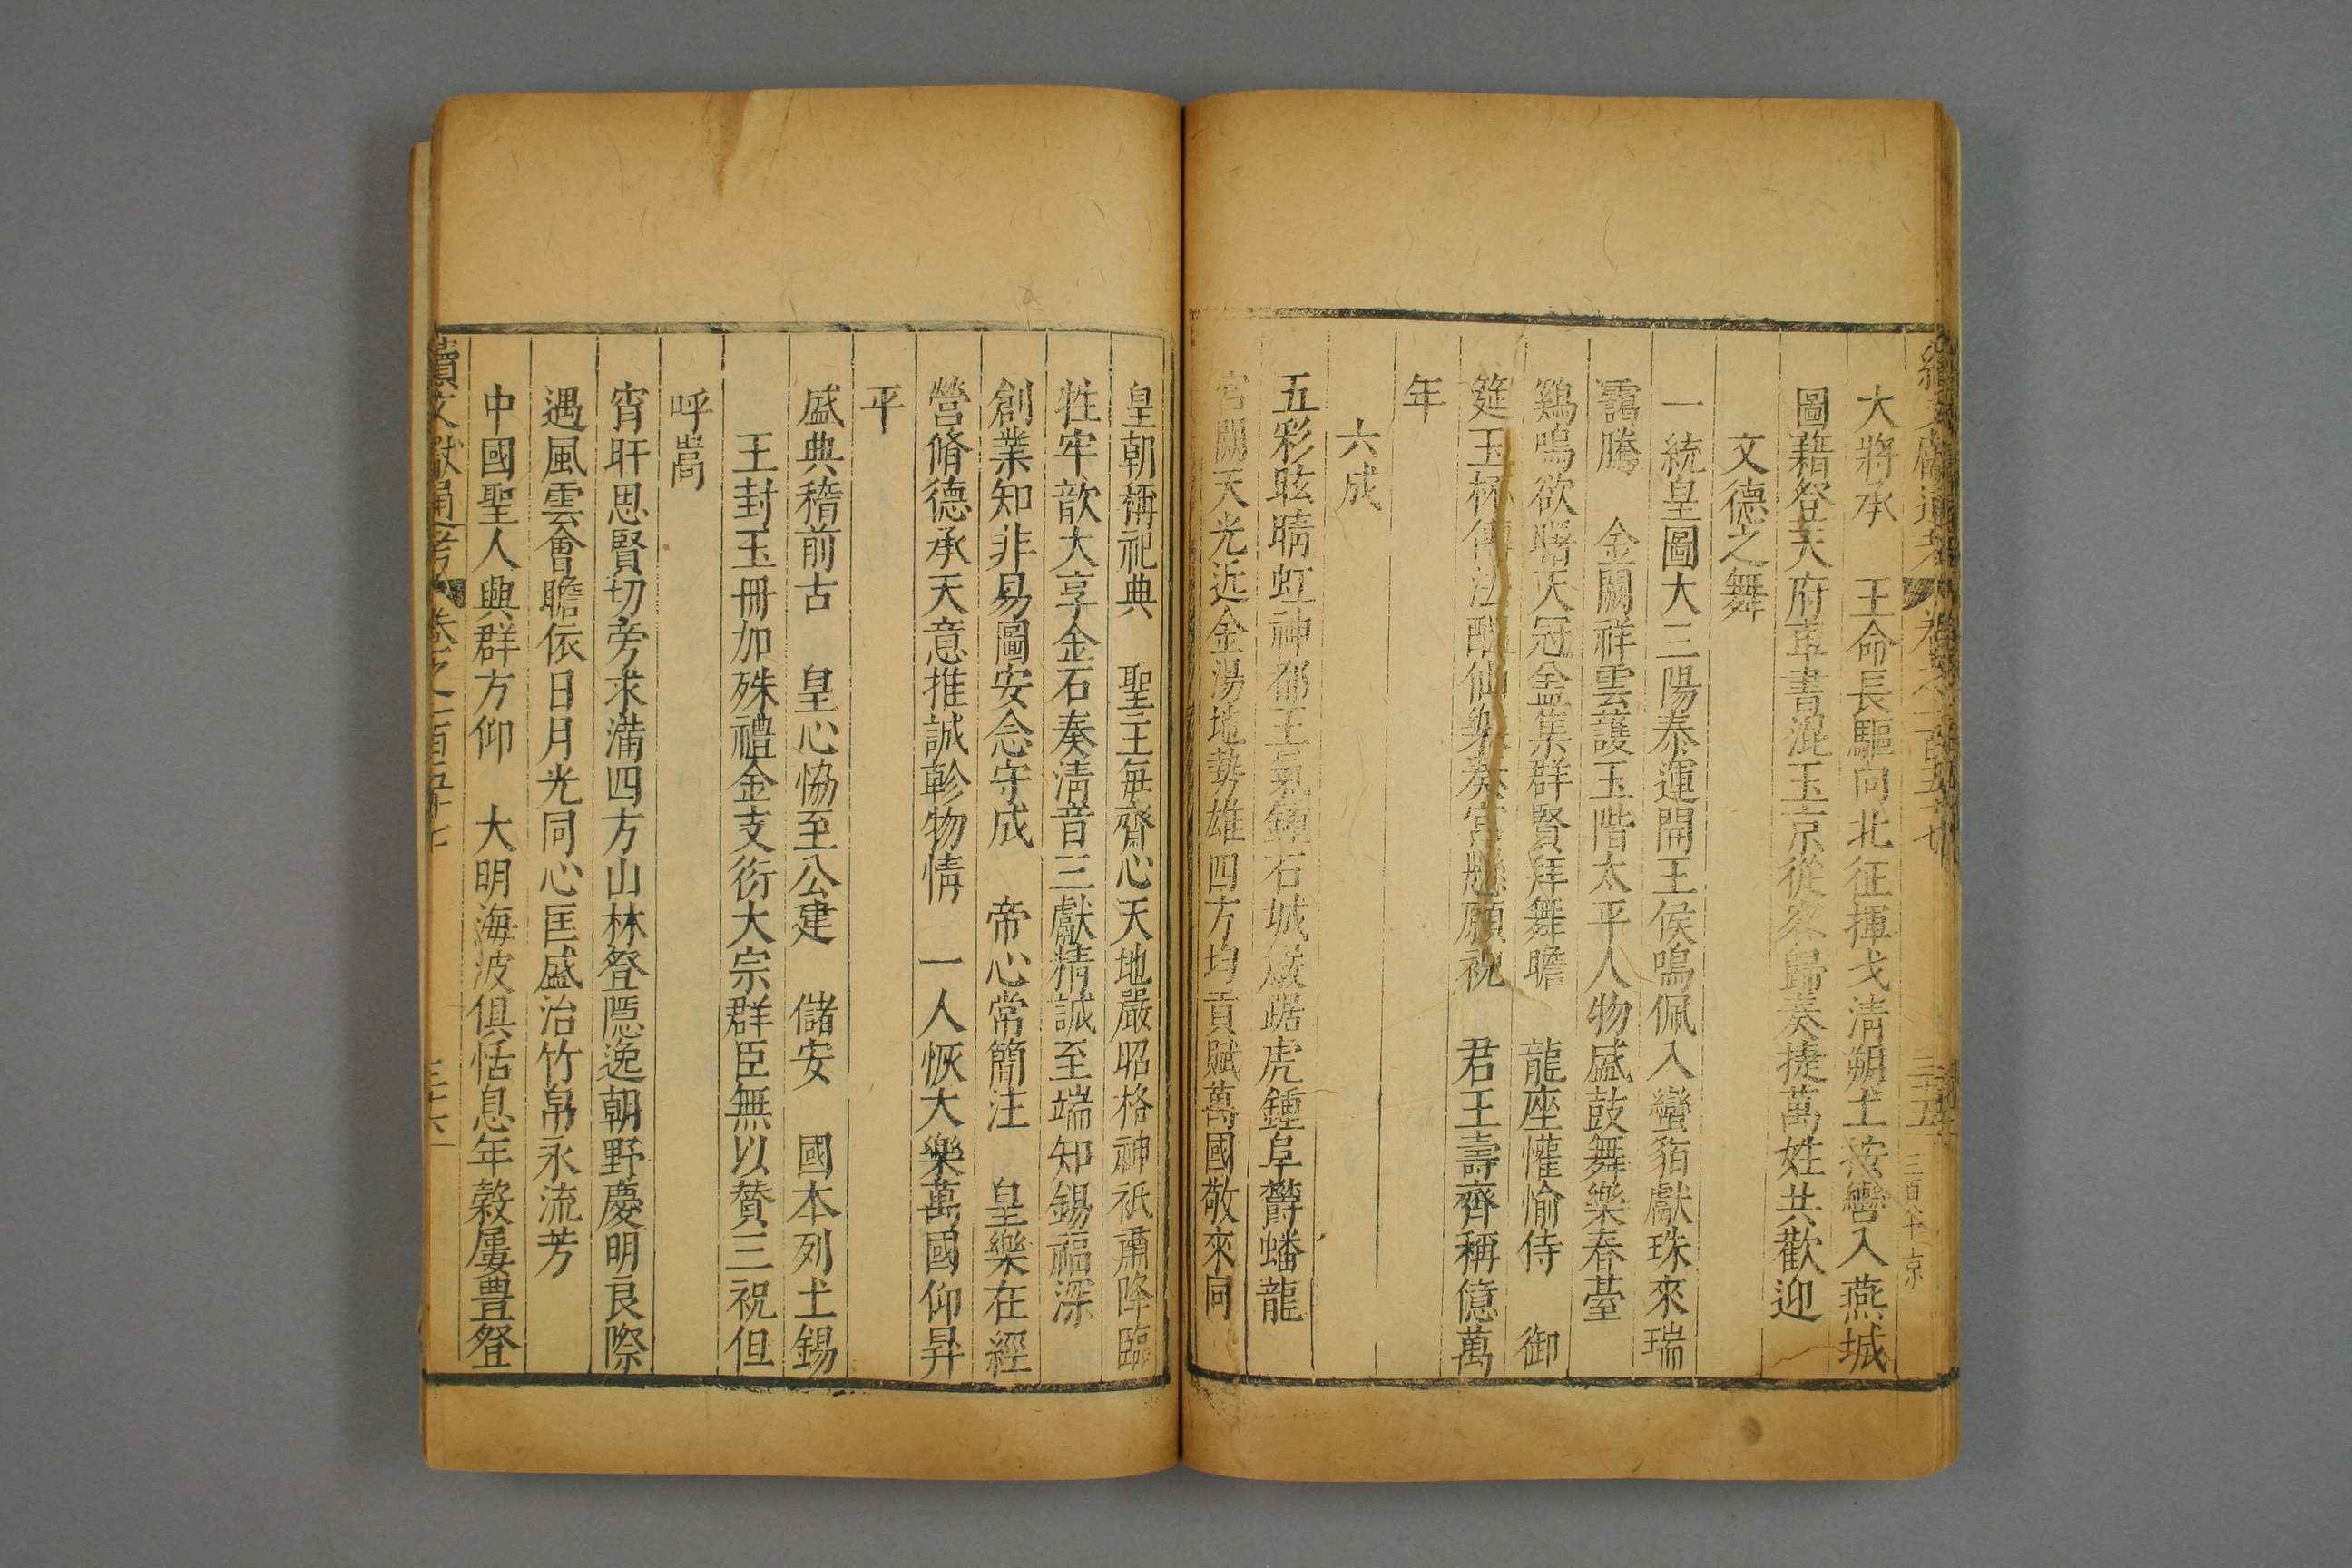 續文獻通考 卷之一百五十七 三十五 三百八十 京
大將承 王命長驅向北征揮戈清朔土按轡入燕城
圖籍登天府車書混玉京從容歸奏捷萬姓共歡迎
文德之舞
一統皇圖大三陽泰運開王侯鳴佩入蠻貊獻珠來瑞
靄騰 金闕祥雲護玉階太平人物盛鼓舞樂春臺
鷄鳴欲曙天冠盖集群賢拜舞瞻 龍座懽愉侍 御
筵玉杯傳法醖仙樂奏宮懸願祝 君王壽齊稱億萬
年
六成
五彩眩晴虹神都王氣鍾石城嚴踞虎鍾阜鬱蟠龍
宮闕天光近金湯地勢雄四方均貢賦萬國敬來同
皇朝稱祀典 聖王每齋心天地嚴昭格神祇肅降臨
牲牢歆大享金石奏清音三獻精誠至端知錫福深
創業知非易圖安念守成 帝心常簡注 皇樂在經
營脩德承天意推誠軫物情 一人恢大樂萬國仰昇
平
盛典稽前古 皇心恊至公建 儲安 國本列土錫
王封玉冊加殊禮金支衍大宗群臣無以贊三祝但
呼嵩
宵旰思賢切旁求滿四方山林登隱逸朝野慶明良際
遇風雲會瞻依日月光同心匡盛治竹帛永流芳
中國聖人興群方仰 大明海波俱恬息年穀屢豊登
續文獻通考 卷之一百五十七 三十六